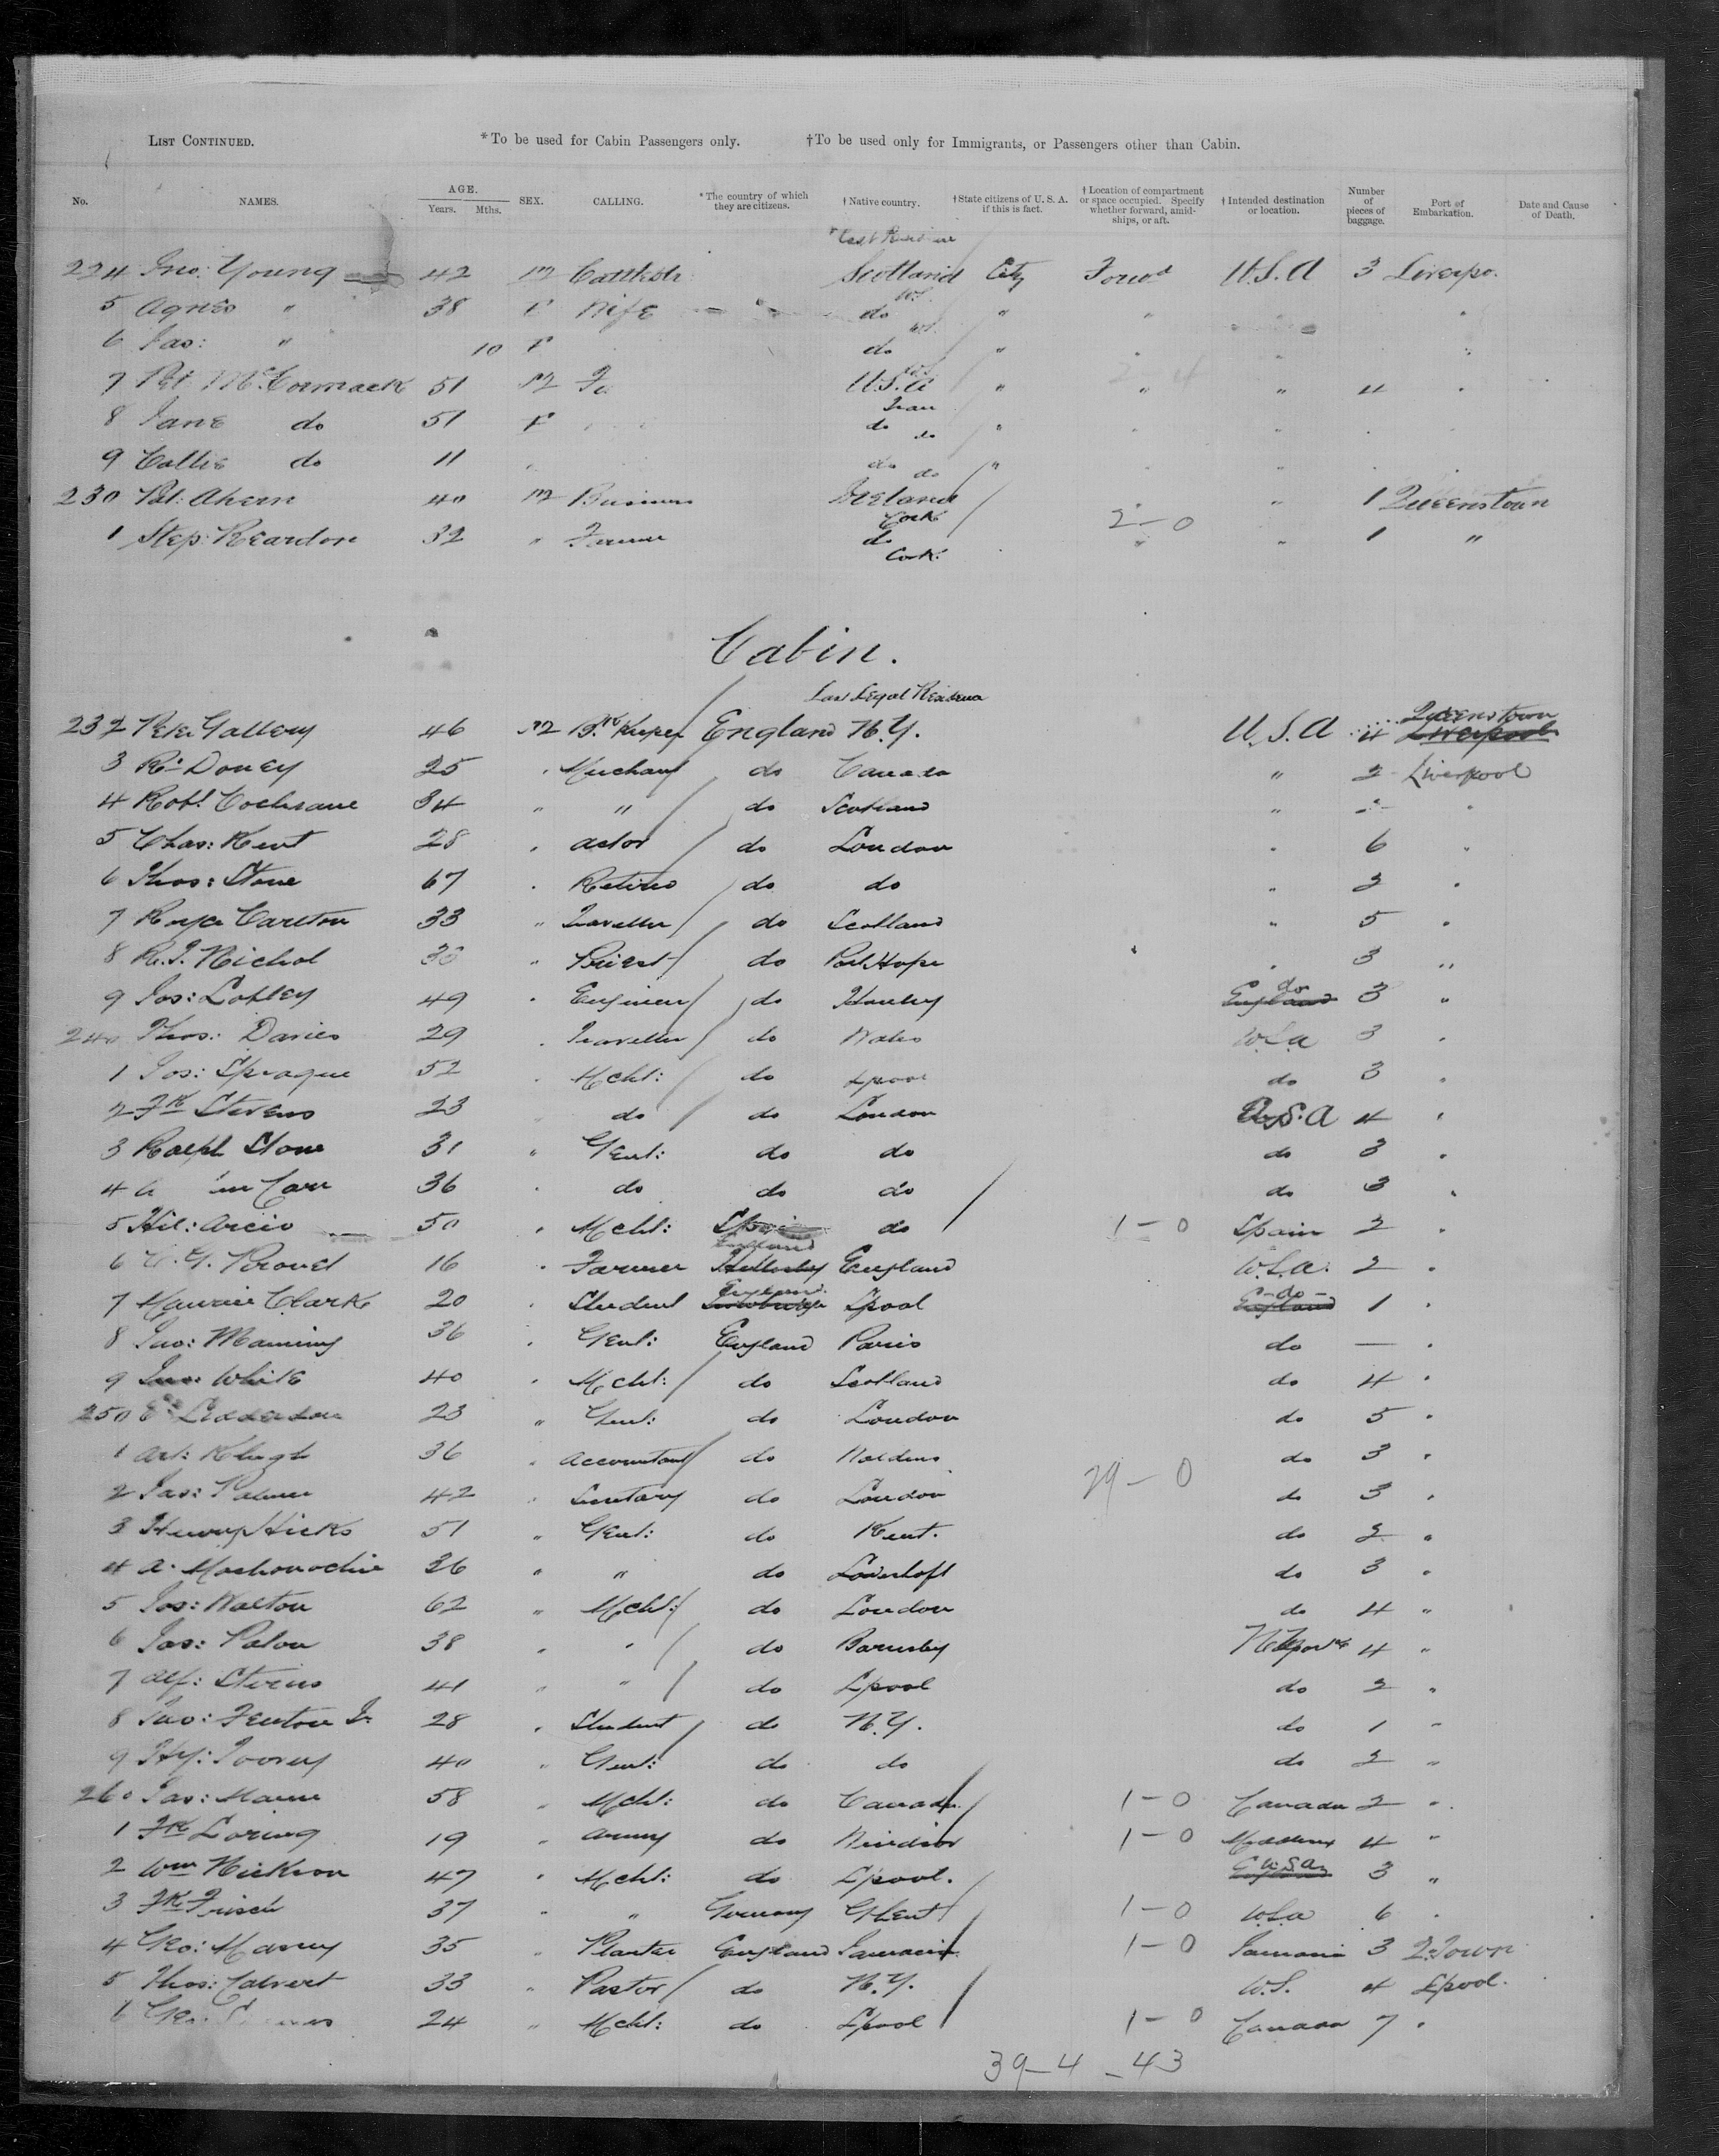 List Continued. *To be used for Cabin Passengers only. †To be used only for Immigrants, or Passengers other than Cabin.
No. NAMES. AGE. Years. Mths. SEX. CALLING. *The country of which they are citizens. †Native country. †State citizens of U. S. A. if this is fact. †Location of compartment or space occupied. Specify whether forward, amidships, or aft. †Intended destination or location. Number of pieces of baggage. Port of Embarkation. Date and Cause of Death.
224 Jno: Young 42 M Scotland City Forwd U.S.A 3 Liverpo.
5 Agnes " 38 F Wife do " "
6 Jas: " 10 F do "
7 Pat McCormack 51 M U.S.A " " " 4
8 Jane do 51 F do do "
9 Callie do 11 " do do "
230 Pat: Ahern 40 M Business Ireland Cork " 1 Queenstown
1 Step: Reardon 32 " Farmer do Cork: 2-0 " 1 "
Cabin.
Last Legal Residence
232 Peter Gallery 46 M Bk Keeper England N.Y. U.S.A 4 Queenstown Liverpool
3 Rd Doney 25 Merchant do Canada " 2 Liverpool
4 Robt Cochrane 34 " " do Scotland " -
5 Chas: Kent 28 " Actor do London " 6 "
6 Thos: Stone 67 " Retired do do " 2 "
7 Carlton 33 " Traveller do Scotland " 5 "
8 R.J. Nichol 30 " Priest do Port Hope " 3 "
9 Jos: Lobley 49 " Engineer do Hanley England do 3 "
240 Thos: Davies 29 " Traveller do Wales U.S.A 3 "
1 Jos: Sprague 52 " Mcht: do Lpool do 3 "
2 Fk Stevens 23 " do do London U.S.A 4 "
3 Ralph Stone 31 " Gent: do do do 3 "
4 Carr 36 " do do do do 3 "
5 Hil: Arcio 50 " Mcht: Spain do 1-0 Spain 2 "
6 Proud 16 " Farmer England England U.S.A. 2 "
7 Maurice Clark 20 " Student England Lpool England -do- 1 "
8 Jno: Manning 36 " Gent: England Paris do — "
9 Jno: White 40 " Mcht: do Scotland do 4 "
250 23 " Gent: do London do 5 "
1 Art: Klugh 36 " Accountant do do 3 "
2 Jas: Palmer 42 " Secretary do London 29-0 do 3 "
3 Henry Hicks 51 " Gent: do Kent. do 2 "
4 A. Machonochie 26 " " do do 3 "
5 Jos: Walton 62 " Mcht: do London do 4 "
6 Jas: Paton 38 " " do Barnsley 4 "
7 Alf: Sterins 41 " " do Lpool do 2 "
8 Jno: Fenton Jr 28 " Student do N.Y. do 1 "
9 Hy: 40 " Gent: do do do 2 "
260 Jas: 58 " Mcht: do Canada 1-0 Canada 2 "
1 Fk Loring 19 " Army do Windsor 1-0 4 "
2 Wm Nickson 47 " Mcht: do Lpool. England U.S.A 3 "
3 Fk Frisch 37 " " Germany Ghent 1-0 U.S.A 6 "
4 Geo: 35 " Planter England Jamaica 1-0 Jamaica 3 Q.Town
5 Thos: Calvert 33 " Pastor do N.Y. U.S. 4 Lpool.
6 Geo: 24 " Mcht: do Lpool 1-0 Canada 7 "
39-4-43